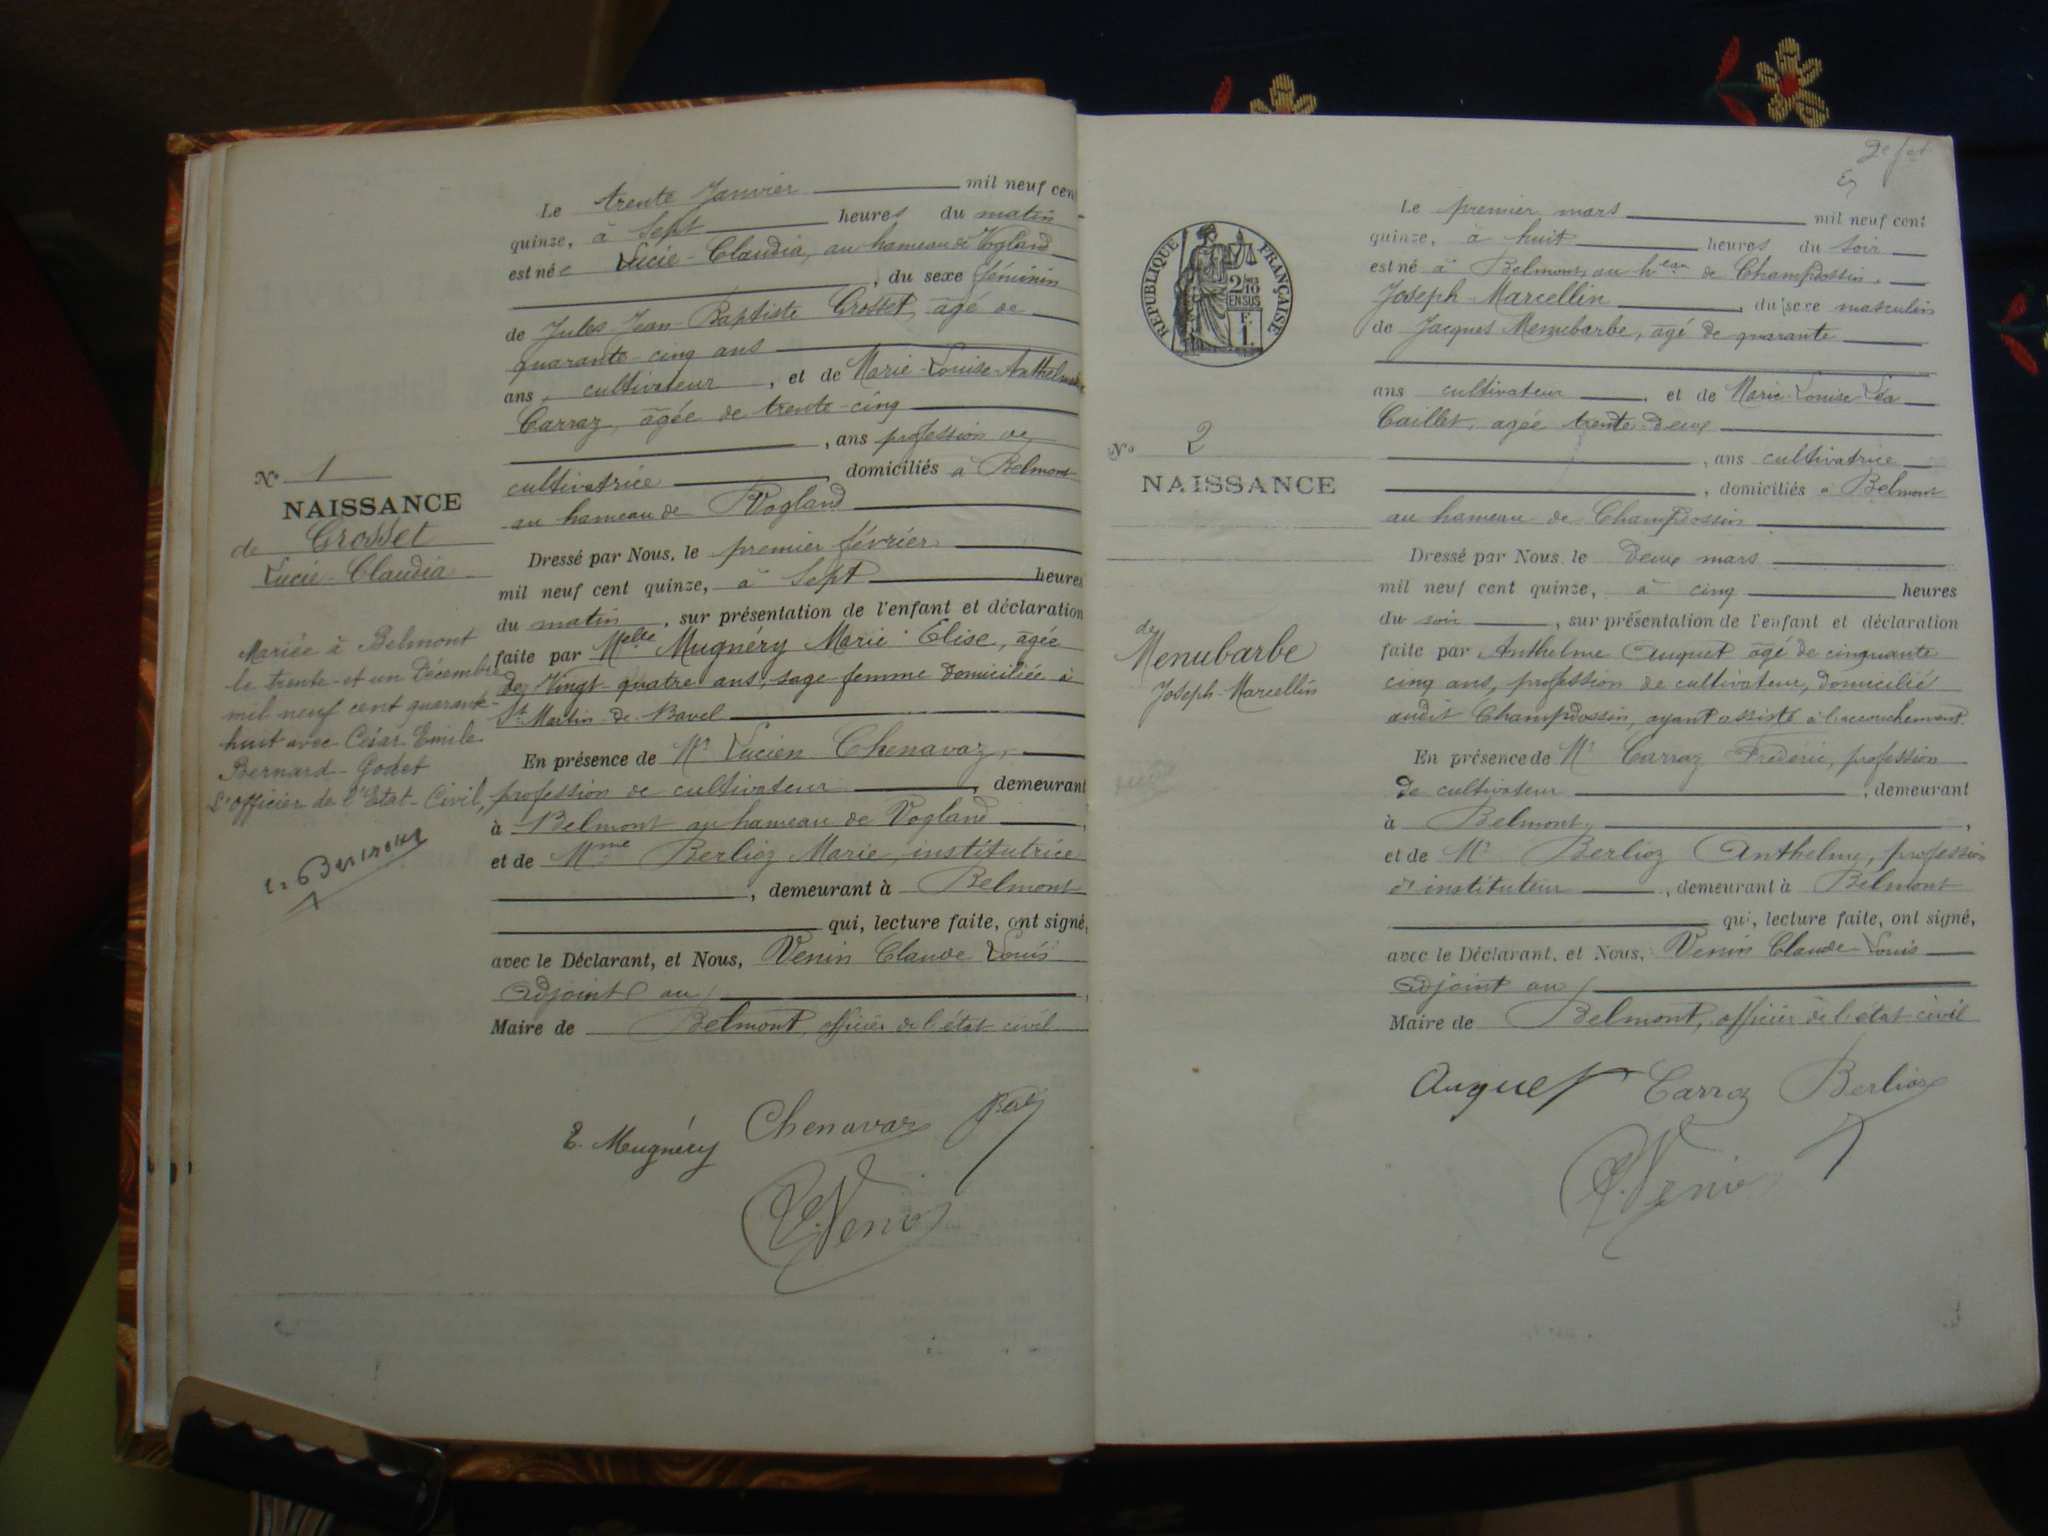 Le trente Janvier mil neuf cent
quinze, à Sept heures du matin
est née Lucie-Claudia, au hameau de Vogland
, du sexe féminin
de Jules Jean-Baptiste Grosset, âgé de
quarante-cinq ans
ans cultivateur, et de Marie-Louise-Anthelmette
Carraz, âgée de trente-cinq
, ans profession de
cultivatrice, domiciliés à Belmont
au hameau de Vogland
N° 1
NAISSANCE
de Grosset
Lucie-Claudia
Dressé par Nous, le premier février
mil neuf cent quinze, à Sept heures
du matin, sur présentation de l'enfant et déclaration
faite par Melle Mugnéry Marie-Elise, âgée
de Vingt-quatre ans, sage-femme domiciliée à
St Martin-de-Bavel
Mariée à Belmont
le trente-et un Décembre
mil neuf cent quarante-
huit avec César Emile
Bernard-Godet
L'officier de l'Etat-Civil,
En présence de Mr Lucien Chenavaz,
profession de cultivateur, demeurant
à Belmont au hameau de Vogland,
et de Mme Berlioz Marie, institutrice
, demeurant à Belmont
qui, lecture faite, ont signé,
avec le Déclarant, et Nous, Venin Claude Louis
Adjoint au
Maire de Belmont, officier de l'état civil
E. Mugnéry Chenavaz
C. Venin
REPUBLIQUE FRANÇAISE
2/10
EN SUS
F.
1.
N° 2
NAISSANCE
de
Menubarbe
Joseph-Marcellin
Le premier mars mil neuf cent
quinze, à huit heures du soir
est né à Belmont, au heau de Champdossin,
Joseph-Marcellin, du sexe masculin
de Jacques Menubarbe, âgé de quarante
ans cultivateur, et de Marie-Louise-Léa
Caillet, agée trente-deux
, ans cultivatrice
, domiciliés à Belmont
au hameau de Champdossin
Dressé par Nous, le Deux mars
mil neuf cent quinze, à cinq heures
du soir, sur présentation de l'enfant et déclaration
faite par Anthelme Auguet âgé de cinquante
cinq ans, profession de cultivateur, domicilié
audit Champdossin, ayant assisté à l'accouchement.
En présence de Mr Carraz Frédéric, profession
de cultivateur, demeurant
à Belmont,
et de Mr Berlioz Anthelme, profession
d'instituteur, demeurant à Belmont
qui, lecture faite, ont signé,
avec le Déclarant, et Nous, Venin Claude Louis
Adjoint au
Maire de Belmont, officier de l'état civil
Auguet Carraz Berlioz
C. Venin